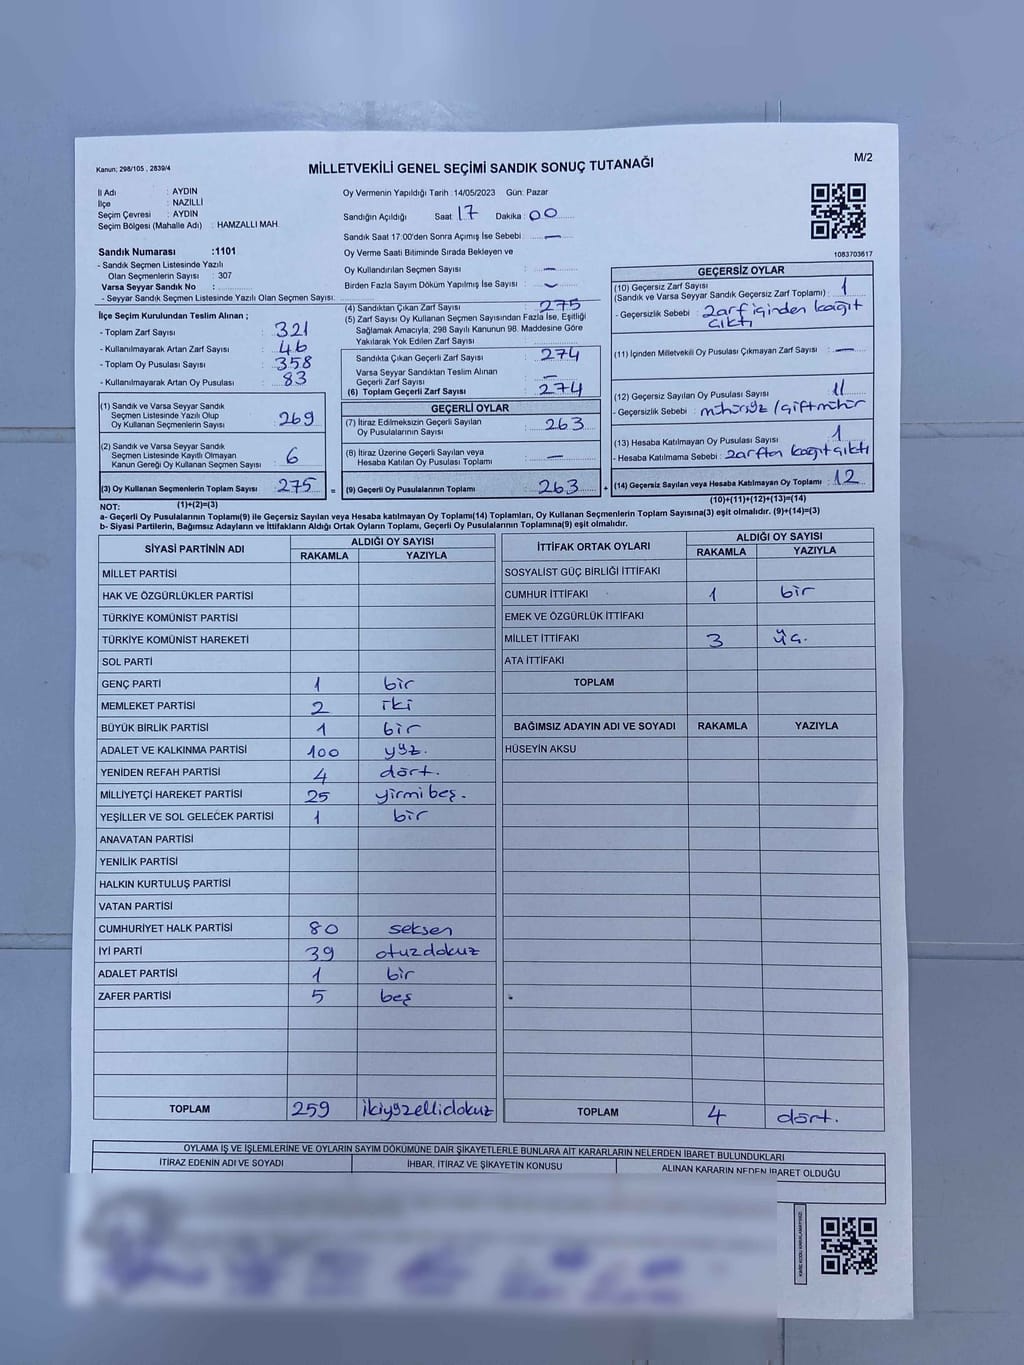 Kanun; 298/105 , 2839/4
MİLLETVEKİLİ GENEL SEÇİMİ SANDIK SONUÇ TUTANAĞI
M/2
İl Adı : AYDIN
İlçe : NAZİLLİ
Seçim Çevresi : AYDIN
Seçim Bölgesi (Mahalle Adı) : HAMZALLI MAH.
Oy Vermenin Yapıldığı Tarih :14/05/2023 Gün: Pazar
Sandığın Açıldığı Saat 17 Dakika 00
Sandık Saat 17:00'den Sonra Açılmış İse Sebebi : —
Oy Verme Saati Bitiminde Sırada Bekleyen ve
Oy Kullandırılan Seçmen Sayısı : —
Birden Fazla Sayım Döküm Yapılmış İse Sayısı : —
Sandık Numarası :1101
- Sandık Seçmen Listesinde Yazılı
Olan Seçmenlerin Sayısı : 307
Varsa Seyyar Sandık No :
- Seyyar Sandık Seçmen Listesinde Yazılı Olan Seçmen Sayısı:
İlçe Seçim Kurulundan Teslim Alınan ;
- Toplam Zarf Sayısı : 321
- Kullanılmayarak Artan Zarf Sayısı : 46
- Toplam Oy Pusulası Sayısı : 358
- Kullanılmayarak Artan Oy Pusulası : 83
(1) Sandık ve Varsa Seyyar Sandık
Seçmen Listesinde Yazılı Olup
Oy Kullanan Seçmenlerin Sayısı : 269
(2) Sandık ve Varsa Seyyar Sandık
Seçmen Listesinde Kayıtlı Olmayan
Kanun Gereği Oy Kullanan Seçmen Sayısı : 6
(3) Oy Kullanan Seçmenlerin Toplam Sayısı : 275 =
(1)+(2)=(3)
(4) Sandıktan Çıkan Zarf Sayısı : 275
(5) Zarf Sayısı Oy Kullanan Seçmen Sayısından Fazla İse, Eşitliği
Sağlamak Amacıyla, 298 Sayılı Kanunun 98. Maddesine Göre
Yakılarak Yok Edilen Zarf Sayısı :
Sandıkta Çıkan Geçerli Zarf Sayısı : 274
Varsa Seyyar Sandıktan Teslim Alınan
Geçerli Zarf Sayısı : —
(6) Toplam Geçerli Zarf Sayısı : 274
GEÇERLİ OYLAR
(7) İtiraz Edilmeksizin Geçerli Sayılan
Oy Pusulalarının Sayısı : 263
(8) İtiraz Üzerine Geçerli Sayılan veya
Hesaba Katılan Oy Pusulası Toplamı : —
(9) Geçerli Oy Pusulalarının Toplamı : 263 +
1083703617
GEÇERSİZ OYLAR
(10) Geçersiz Zarf Sayısı
(Sandık ve Varsa Seyyar Sandık Geçersiz Zarf Toplamı) : 1
- Geçersizlik Sebebi : Zarf içinden kağıt
çıktı
(11) İçinden Milletvekili Oy Pusulası Çıkmayan Zarf Sayısı : —
(12) Geçersiz Sayılan Oy Pusulası Sayısı : 11
- Geçersizlik Sebebi : mühürsüz / çift mühür
(13) Hesaba Katılmayan Oy Pusulası Sayısı : 1
- Hesaba Katılmama Sebebi : Zarftan kağıt çıktı
(14) Geçersiz Sayılan veya Hesaba Katılmayan Oy Toplamı : 12
(10)+(11)+(12)+(13)=(14)
NOT:
a- Geçerli Oy Pusulalarının Toplamı(9) ile Geçersiz Sayılan veya Hesaba katılmayan Oy Toplamı(14) Toplamları, Oy Kullanan Seçmenlerin Toplam Sayısına(3) eşit olmalıdır. (9)+(14)=(3)
b- Siyasi Partilerin, Bağımsız Adayların ve İttifakların Aldığı Ortak Oyların Toplamı, Geçerli Oy Pusulalarının Toplamına(9) eşit olmalıdır.
SİYASİ PARTİNİN ADI ALDIĞI OY SAYISI
RAKAMLA YAZIYLA
MİLLET PARTİSİ
HAK VE ÖZGÜRLÜKLER PARTİSİ
TÜRKİYE KOMÜNİST PARTİSİ
TÜRKİYE KOMÜNİST HAREKETİ
SOL PARTİ
GENÇ PARTİ 1 bir
MEMLEKET PARTİSİ 2 iki
BÜYÜK BİRLİK PARTİSİ 1 bir
ADALET VE KALKINMA PARTİSİ 100 yüz.
YENİDEN REFAH PARTİSİ 4 dört.
MİLLİYETÇİ HAREKET PARTİSİ 25 yirmi beş.
YEŞİLLER VE SOL GELECEK PARTİSİ 1 bir
ANAVATAN PARTİSİ
YENİLİK PARTİSİ
HALKIN KURTULUŞ PARTİSİ
VATAN PARTİSİ
CUMHURİYET HALK PARTİSİ 80 seksen
İYİ PARTİ 39 otuzdokuz
ADALET PARTİSİ 1 bir
ZAFER PARTİSİ 5 beş
TOPLAM 259 ikiyüzellidokuz
İTTİFAK ORTAK OYLARI ALDIĞI OY SAYISI
RAKAMLA YAZIYLA
SOSYALİST GÜÇ BİRLİĞİ İTTİFAKI
CUMHUR İTTİFAKI 1 bir
EMEK VE ÖZGÜRLÜK İTTİFAKI
MİLLET İTTİFAKI 3 üç.
ATA İTTİFAKI
TOPLAM
BAĞIMSIZ ADAYIN ADI VE SOYADI RAKAMLA YAZIYLA
HÜSEYİN AKSU
TOPLAM 4 dört.
OYLAMA İŞ VE İŞLEMLERİNE VE OYLARIN SAYIM DÖKÜMÜNE DAİR ŞİKAYETLERLE BUNLARA AİT KARARLARIN NELERDEN İBARET BULUNDUKLARI
İTİRAZ EDENİN ADI VE SOYADI İHBAR, İTİRAZ VE ŞİKAYETİN KONUSU ALINAN KARARIN NEDEN İBARET OLDUĞU